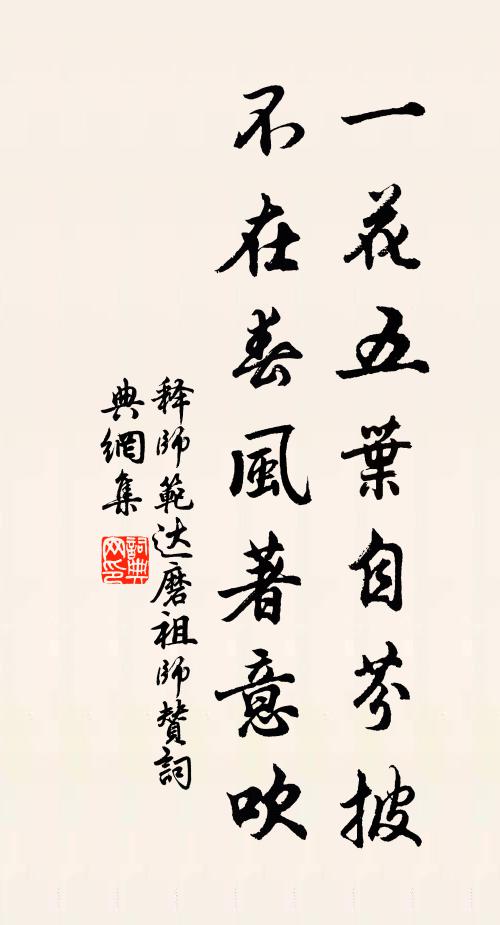 一花五葉自芬披
不在春風著意吹
释師範达磨祖師賛詞
典網集
詞典网印